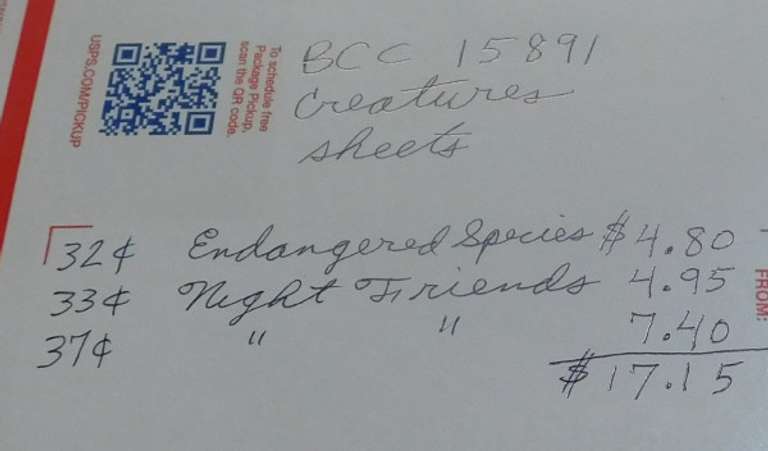 USPS.COM/PICKUP
To schedule free
Package Pickup,
scan the QR code.
BCC 15891
Creatures
sheets
32¢ Endangered Species $4.80
33¢ Night Friends 4.95
37¢ " " 7.40
$17.15
FROM: